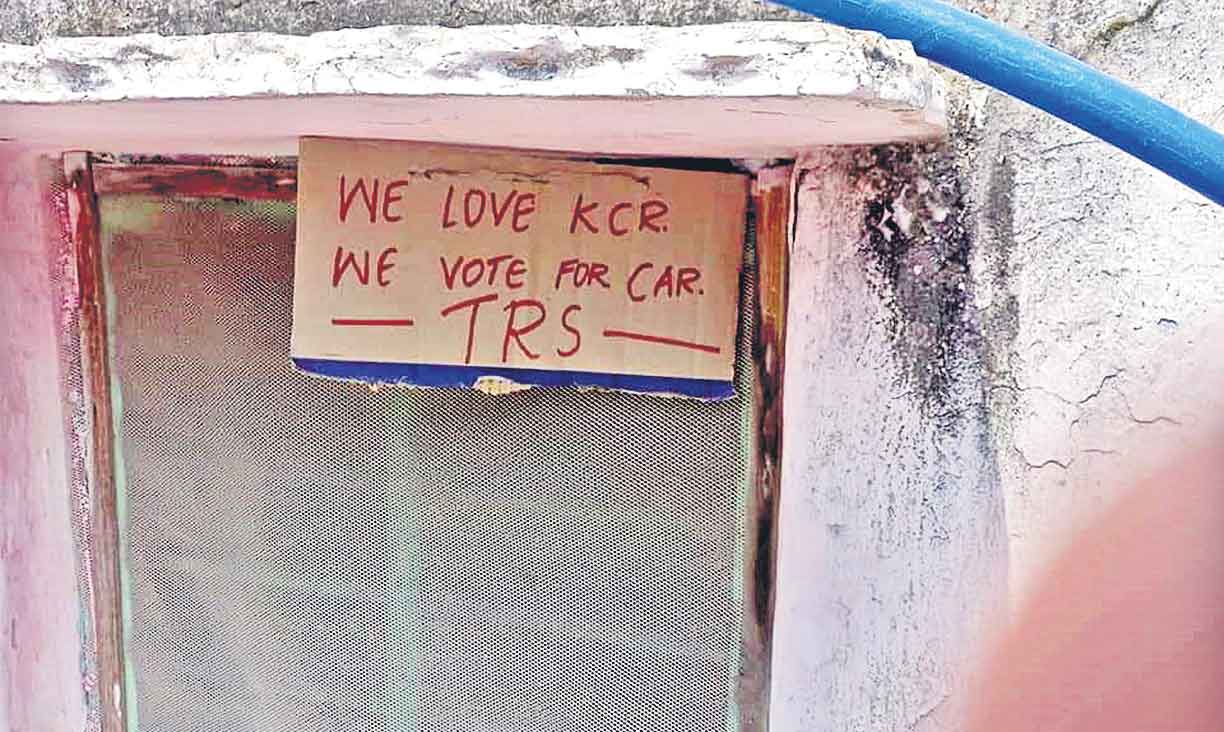 WE LOVE KCR.
WE VOTE FOR CAR.
— TRS —